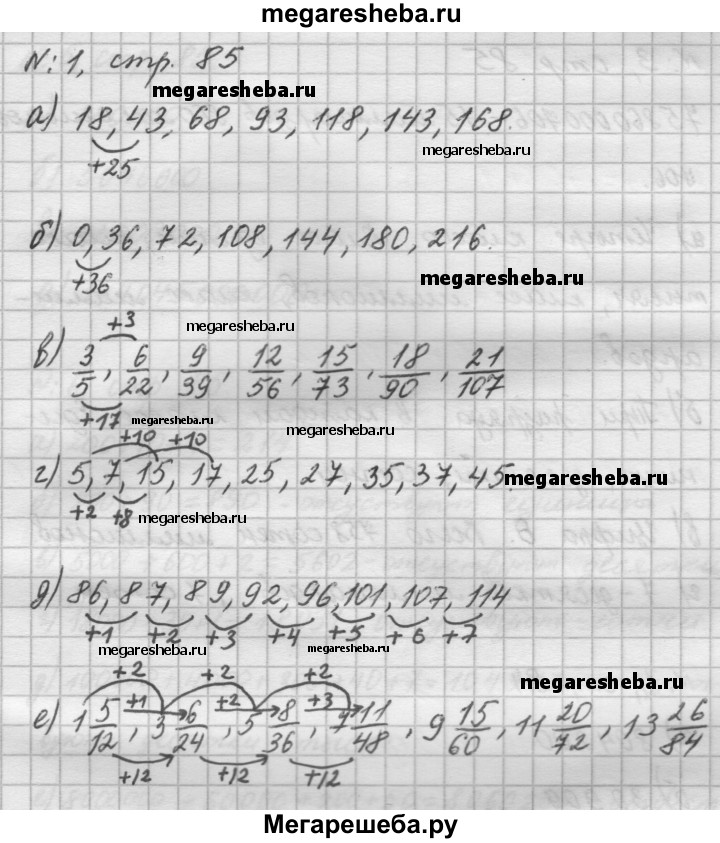 megaresheba.ru
№ 1, стр. 85
megaresheba.ru
а) 18, 43, 68, 93, 118, 143, 168.
+25
megaresheba.ru
б) 0, 36, 72, 108, 144, 180, 216.
+36
megaresheba.ru
+3
megaresheba.ru
в) 3/5, 6/22, 9/39, 12/56, 15/73, 18/90, 21/107
+17
megaresheba.ru
megaresheba.ru
+10 +10
г) 5, 7, 15, 17, 25, 27, 35, 37, 45.
megaresheba.ru
+2 +8
megaresheba.ru
д) 86, 87, 89, 92, 96, 101, 107, 114
+1 +2 +3 +4 +5 +6 +7
megaresheba.ru
megaresheba.ru
+2 +2 +2
megaresheba.ru
+1 +2 +3
е) 1 5/12, 3 6/24, 5 8/36, 7 11/48, 9 15/60, 11 20/72, 13 26/84
+12 +12 +12
megaresheba.ru
Мегарешеба.ру